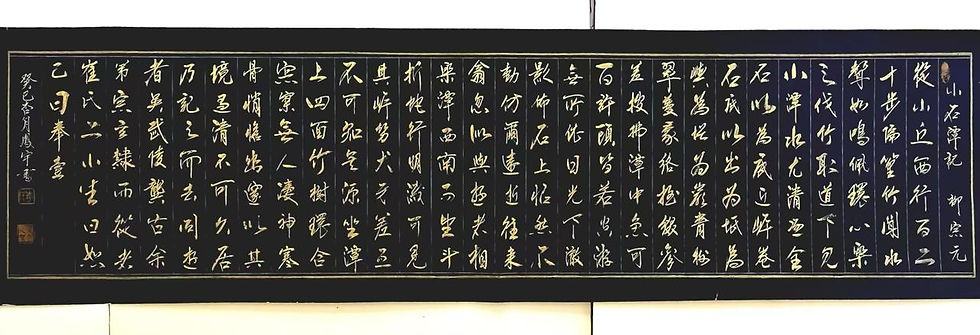 小石潭記 柳宗元
從小丘西行百二
十步隔篁竹聞水
聲如鳴佩環心樂
之伐竹取道下見
小潭水尤清冽全
石以為底近岸卷
石底以出為坻為
嶼為堪為巖青樹
翠蔓蒙絡搖綴參
差披拂潭中魚可
百許頭皆若空游
無所依日光下澈
影佈石上怡然不
動俶爾遠逝往來
翕忽似與遊者相
樂潭西南而望斗
折蛇行明滅可見
其岸勢犬牙差互
不可知其源坐潭
上四面竹樹環合
寂寥無人淒神寒
骨悄愴幽邃以其
境過清不可久居
乃記之而去同遊
者吳武陵龔古余
弟宗玄隸而從者
崔氏二小生曰恕
己曰奉壹
癸巳月鳳宇書